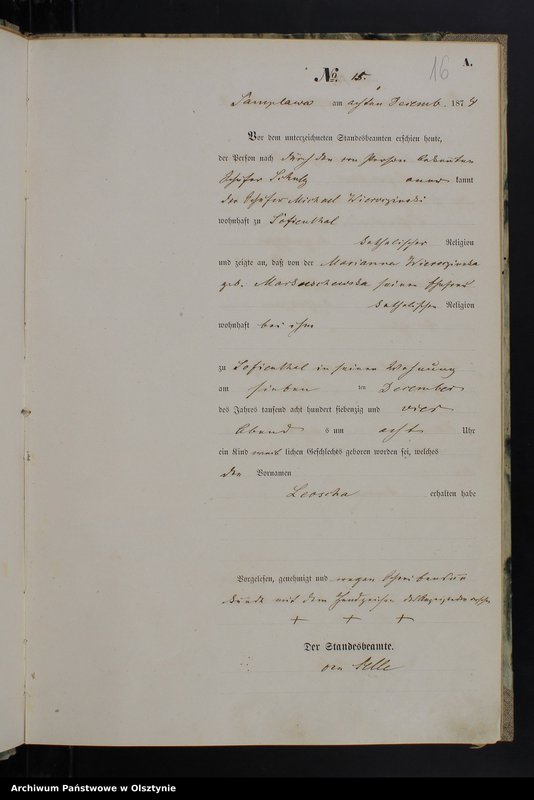 16 A.
No. 15.
Samplawa am achten Decemb. 1874
Vor dem unterzeichneten Standesbeamten erschien heute,
der Persönlichkeit nach durch den von Person bekannten
Schäfer aner kannt
der Schäfer Michael
wohnhaft zu Sofienthal
katholischer Religion
und zeigte an, daß von der Marianna
geb. seiner Ehefrau
katholischer Religion
wohnhaft bei ihm
zu Sofienthal in seiner Wohnung
am sieben ten December
des Jahres tausend acht hundert siebenzig und vier
Abend s um acht Uhr
ein Kind weib lichen Geschlechts geboren worden sei, welches
den Vornamen
Leoscha erhalten habe
Vorgelesen, genehmigt und wegen Schreibensun
kunde mit dem Handzeichen des Anzeigenden versehn
+ + +
Der Standesbeamte.
Archiwum Państwowe w Olsztynie